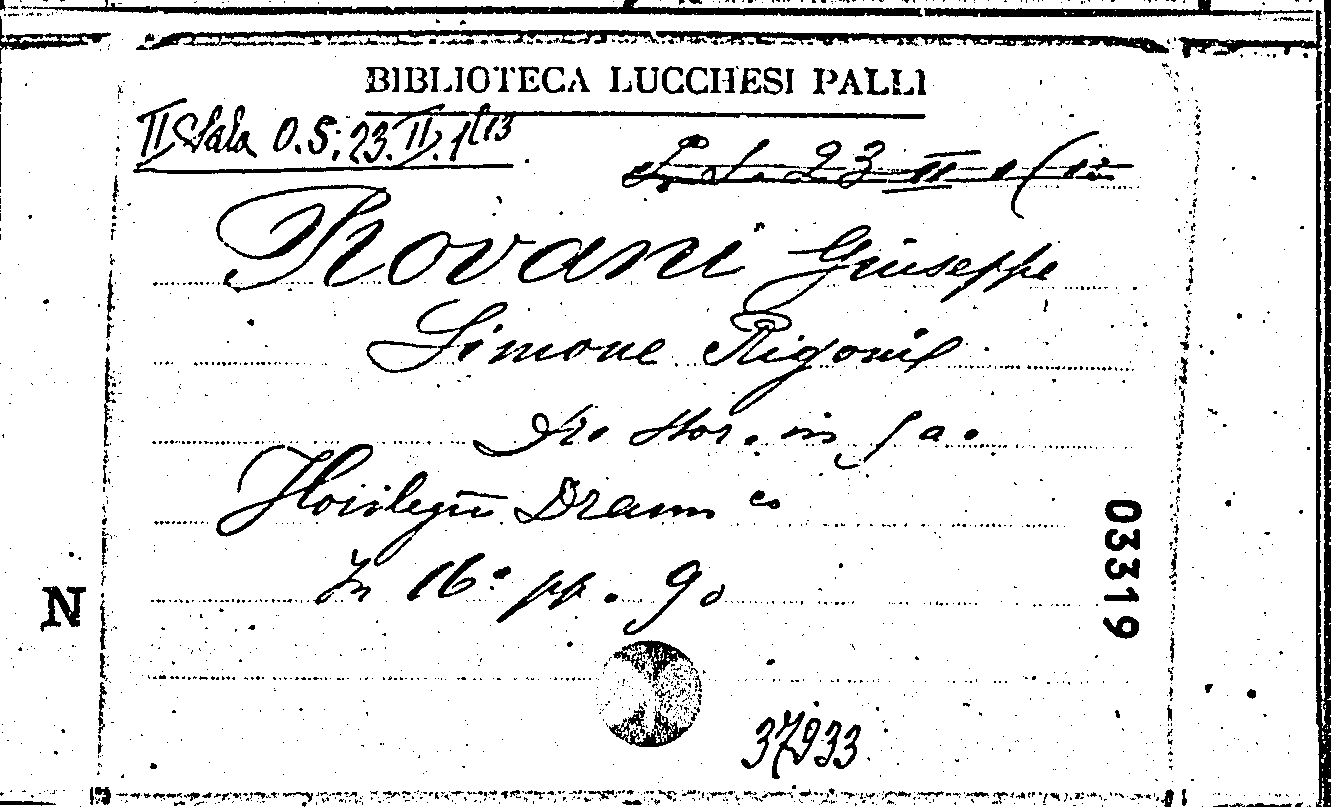 BIBLIOTECA LUCCHESI PALLI
II Sala O.S. 23. II. 1(13
L. L. 23 II 1 (13
Rovani Giuseppe
Simone Rigoni
Dr. stor. in 5 a.
Florilegio Dramm co
In 16° pp. 90
N
03319
37933